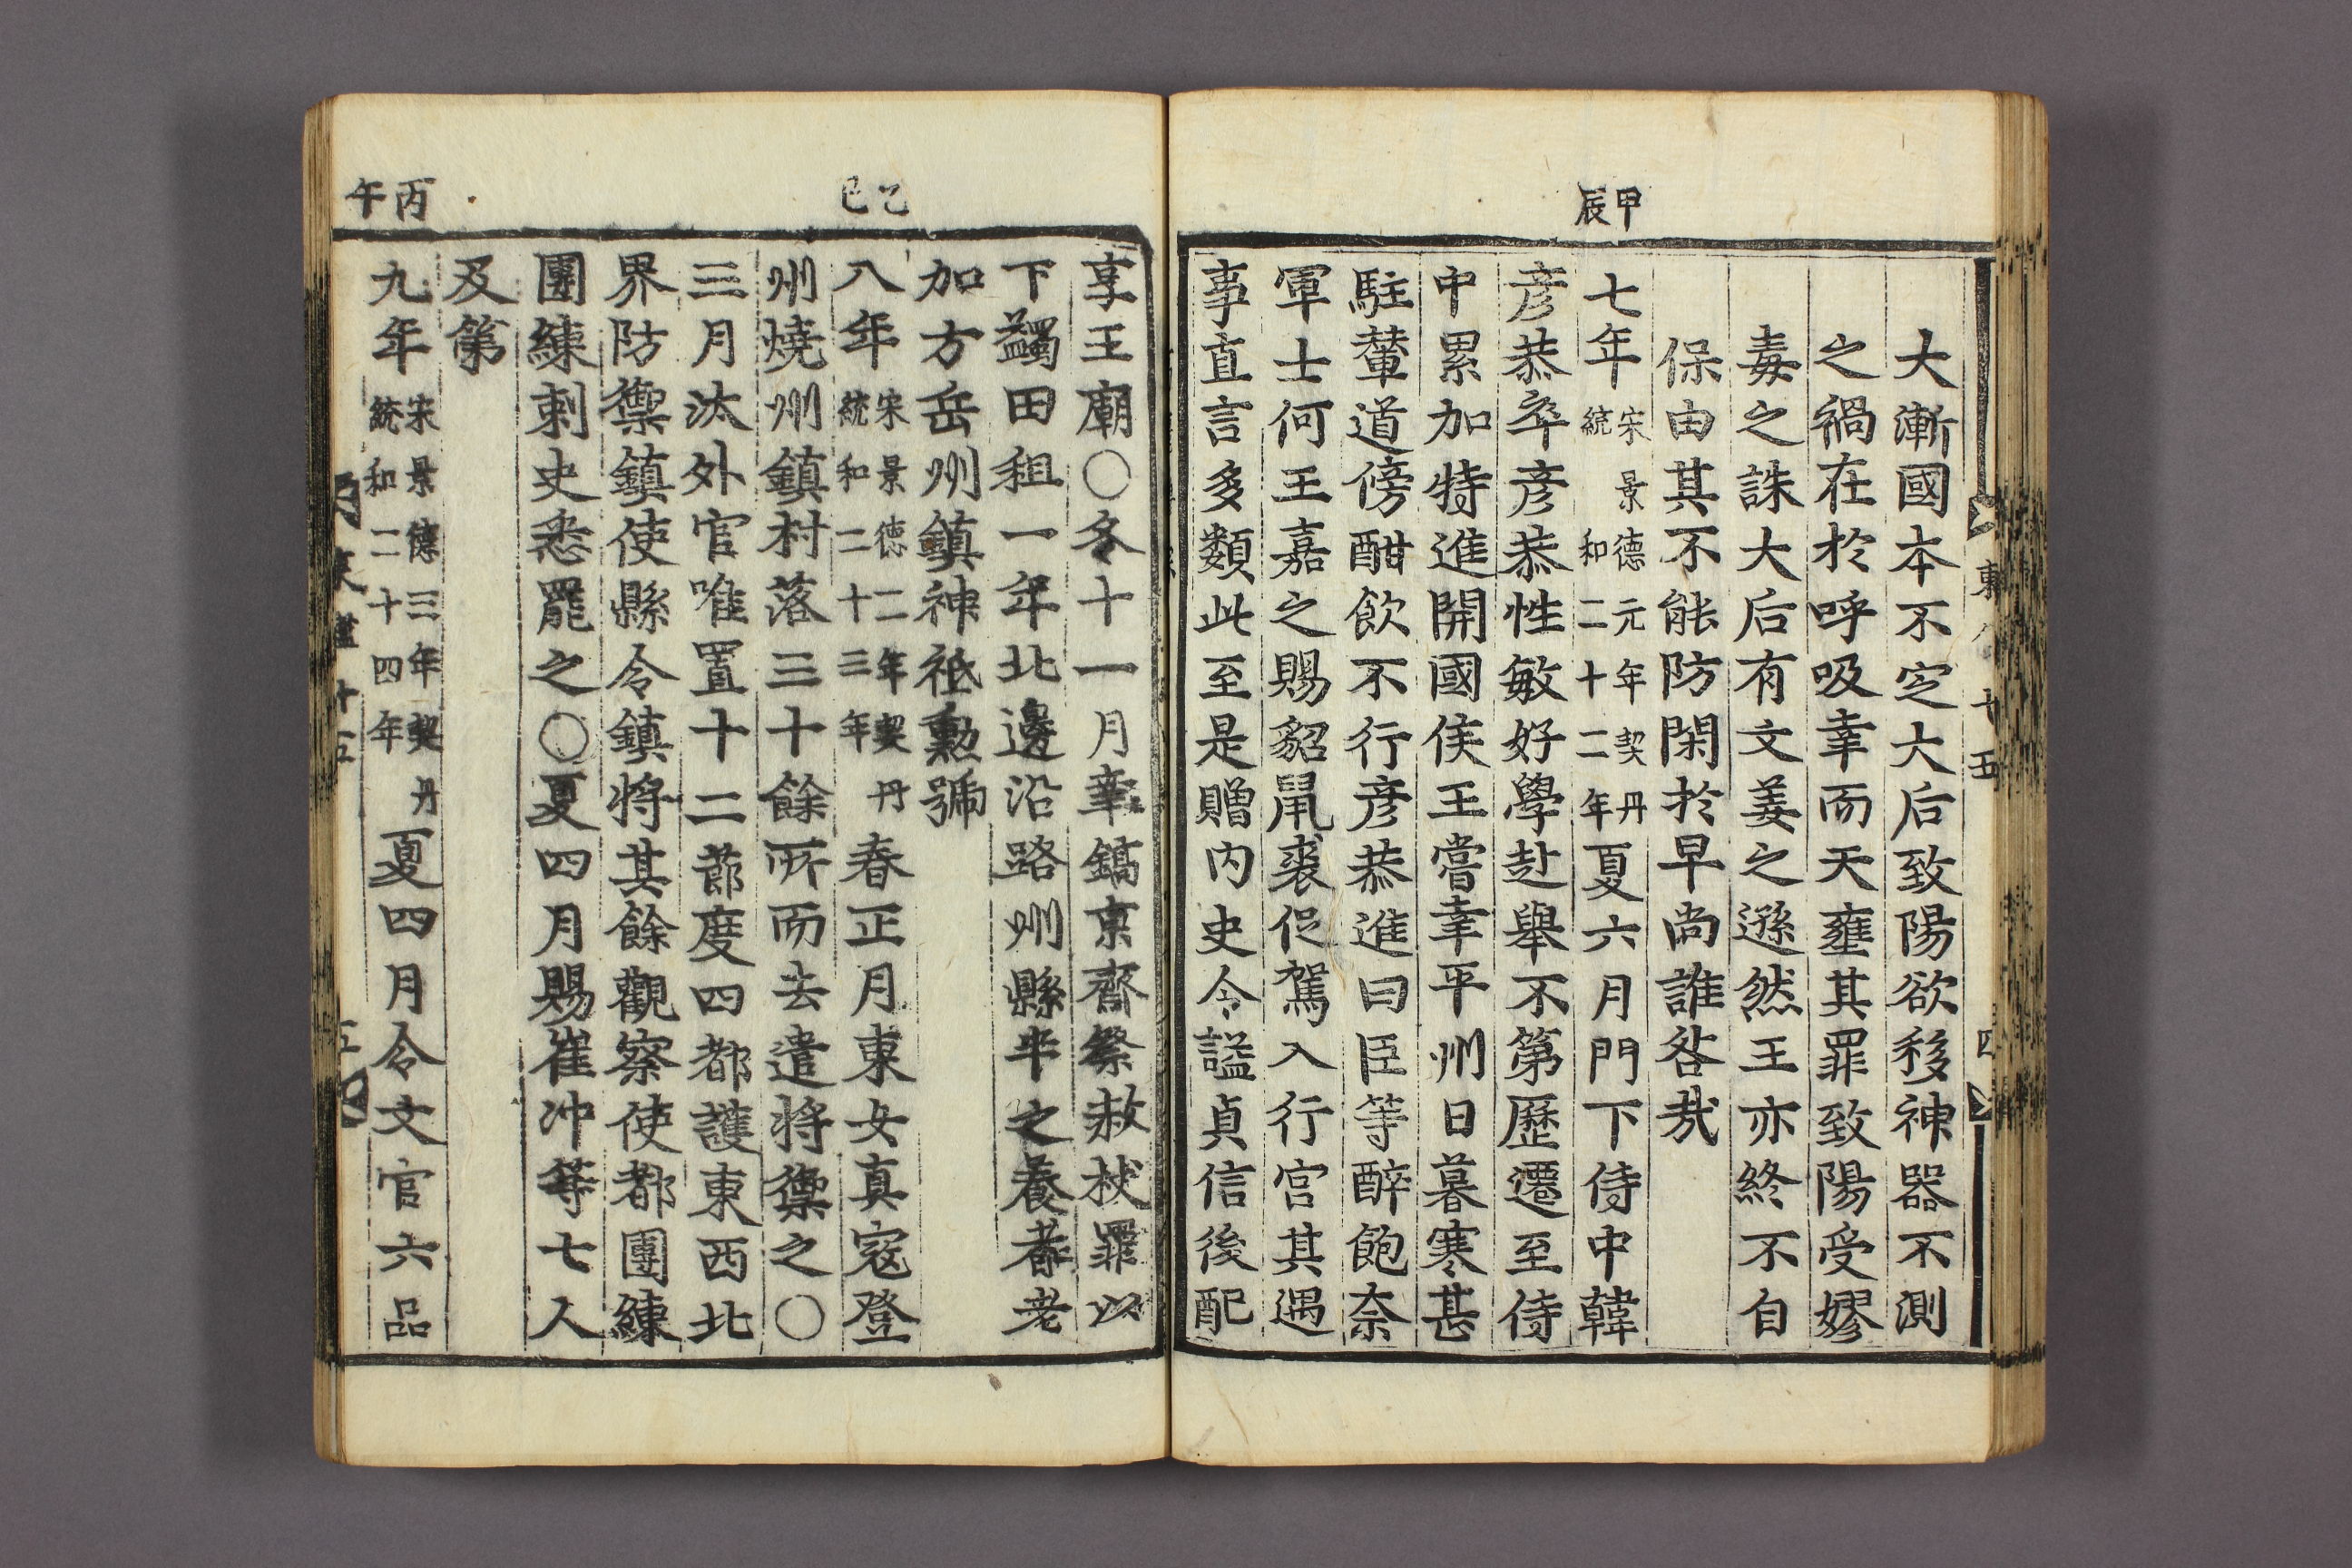 甲辰
大漸國本不定大后致陽欲移神器不測
之禍在於呼吸幸而天壅其罪致陽受嫪
毒之誅大后有文姜之遜然王亦終不自
保由其不能防閑於早尚誰咎㢤
七年宋景德元年契丹統和二十二年夏六月門下侍中韓
彦恭卒彦恭性敏好學赴舉不第歷遷至侍
中累加特進開國侯王嘗幸平州日暮寒甚
駐輦道傍酣飲不行彦恭進曰臣等醉飽奈
軍士何王嘉之賜貂鼠裘促駕入行宮其遇
事直言多類此至是贈内史令謚貞信後配
乙巳
丙午
享王廟○冬十一月幸鎬京齋祭赦杖罪以
下蠲田租一年北邊沿路州縣半之養耆老
加方岳州鎮神祇勳號
八年宋景德二年契丹統和二十三年春正月東女真寇登
州燒州鎮村落三十餘所而去遣將禦之○
三月汰外官唯置十二莭度四都護東西北
界防禦鎮使縣令鎮將其餘觀察使都團練
團練刺史悉罷之○夏四月賜崔冲等七人
及第
九年宋景德三年契丹統和二十四年夏四月令文官六品